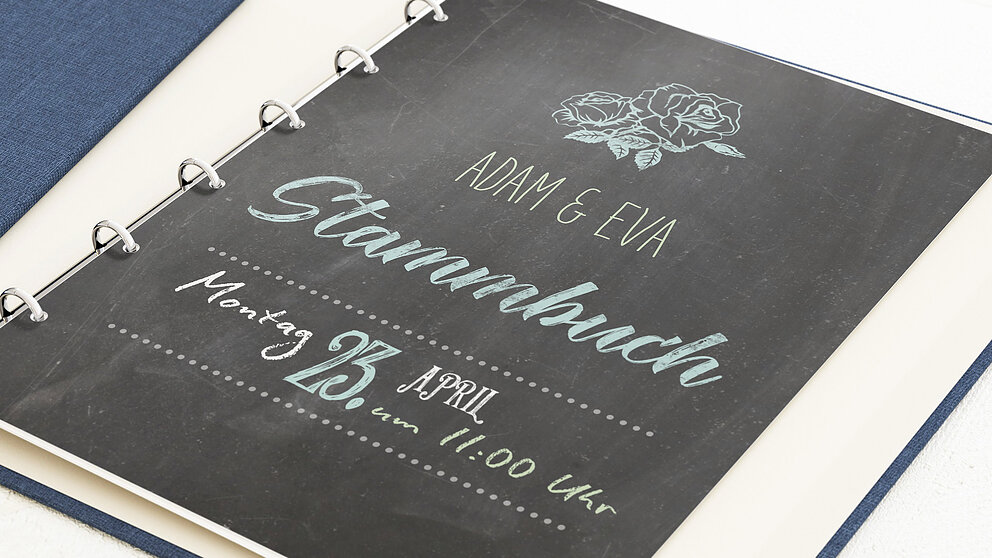 ADAM & EVA
Stammbuch
Montag 23. APRIL
um 11:00 Uhr